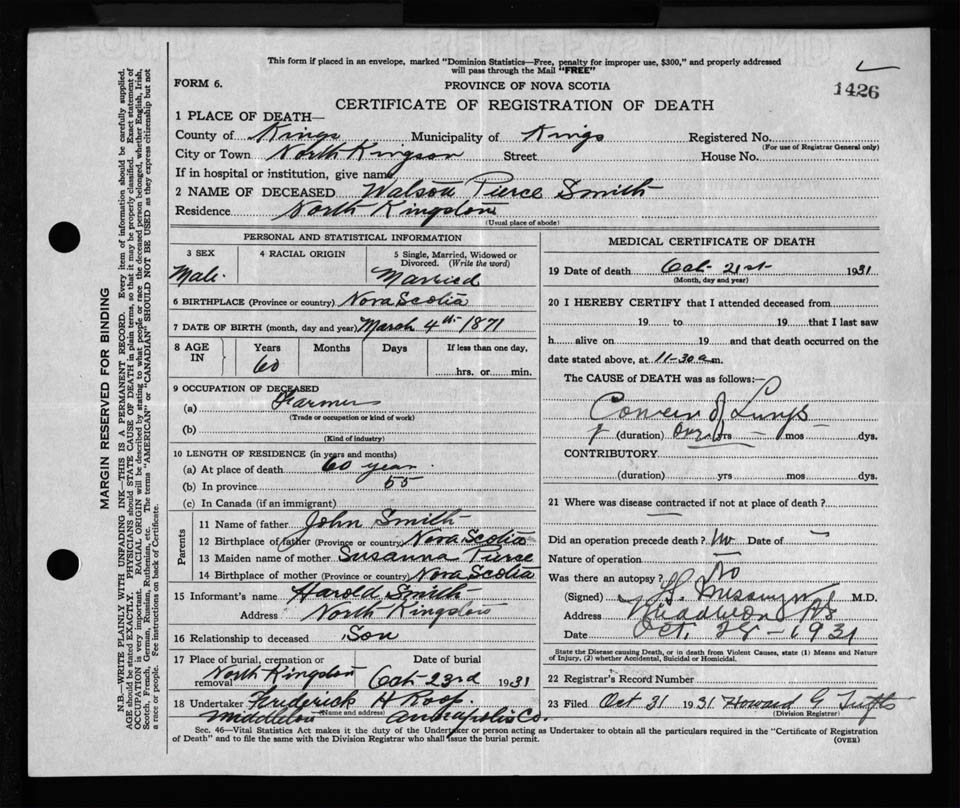 This form if placed in an envelope, marked "Dominion Statistics—Free, penalty for improper use, $300," and properly addressed
will pass through the Mail "FREE"
FORM 6.
PROVINCE OF NOVA SCOTIA
1426
CERTIFICATE OF REGISTRATION OF DEATH
1 PLACE OF DEATH—
County of Kings Municipality of Kings Registered No.
(For use of Registrar General only)
City or Town North Kingson Street House No.
If in hospital or institution, give name
2 NAME OF DECEASED Watson Pierce Smith
Residence North Kingston
(Usual place of abode)
PERSONAL AND STATISTICAL INFORMATION
3 SEX 4 RACIAL ORIGIN 5 Single, Married, Widowed or Divorced. (Write the word)
Male. Married
6 BIRTHPLACE (Province or country) Nova Scotia
7 DATE OF BIRTH (month, day and year) March 4th 1871
8 AGE IN Years Months Days If less than one day,
60 hrs. or min.
9 OCCUPATION OF DECEASED
(a) Farmer
(Trade or occupation or kind of work)
(b)
(Kind of industry)
10 LENGTH OF RESIDENCE (in years and months)
(a) At place of death 60 year
(b) In province 55
(c) In Canada (if an immigrant)
Parents
11 Name of father John Smith
12 Birthplace of father (Province or country) Nova Scotia
13 Maiden name of mother Susanna Pierce
14 Birthplace of mother (Province or country) Nova Scotia
15 Informant's name Harold Smith
Address North Kingston
16 Relationship to deceased Son
17 Place of burial, cremation or removal Date of burial
North Kingston Oct 23rd 1931
18 Undertaker Frederick H
(Name and address)
Middleton Annapolis Co.
MEDICAL CERTIFICATE OF DEATH
19 Date of death Oct 21st 1931
(Month, day and year)
20 I HEREBY CERTIFY that I attended deceased from
19 to 19 that I last saw
h alive on 19 and that death occurred on the
date stated above, at 11-30 a.m.
The CAUSE OF DEATH was as follows:—
of Lungs
(duration) yrs — mos — dys.
CONTRIBUTORY
(duration) yrs mos dys.
21 Where was disease contracted if not at place of death?
—
Did an operation precede death? No Date of —
Nature of operation —
Was there an autopsy? No
(Signed) M.D.
Address NS
Date Oct. 28 - 1931
State the Disease causing Death, or in death from Violent Causes, state (1) Means and Nature
of Injury, (2) whether Accidental, Suicidal or Homicidal.
22 Registrar's Record Number
23 Filed Oct 31 1931 Howard G Tufts
(Division Registrar)
Sec. 46—Vital Statistics Act makes it the duty of the Undertaker or person acting as Undertaker to obtain all the particulars required in the "Certificate of Registration
of Death" and to file the same with the Division Registrar who shall issue the burial permit.
(OVER)
MARGIN RESERVED FOR BINDING
N.B.—WRITE PLAINLY WITH UNFADING INK—THIS IS A PERMANENT RECORD. Every item of information should be carefully supplied.
AGE should be stated EXACTLY. PHYSICIANS should STATE CAUSE OF DEATH in plain terms, so that it may be properly classified. Exact statement of
OCCUPATION is very important. RACIAL ORIGIN will be described by stating to what people or race the deceased person belonged, whether English, Irish,
Scotch, French, German, Russian, Ruthenian, etc. The terms "AMERICAN" or "CANADIAN" SHOULD NOT BE USED as they express citizenship but not
a race or people. Fee instructions on back of Certificate.